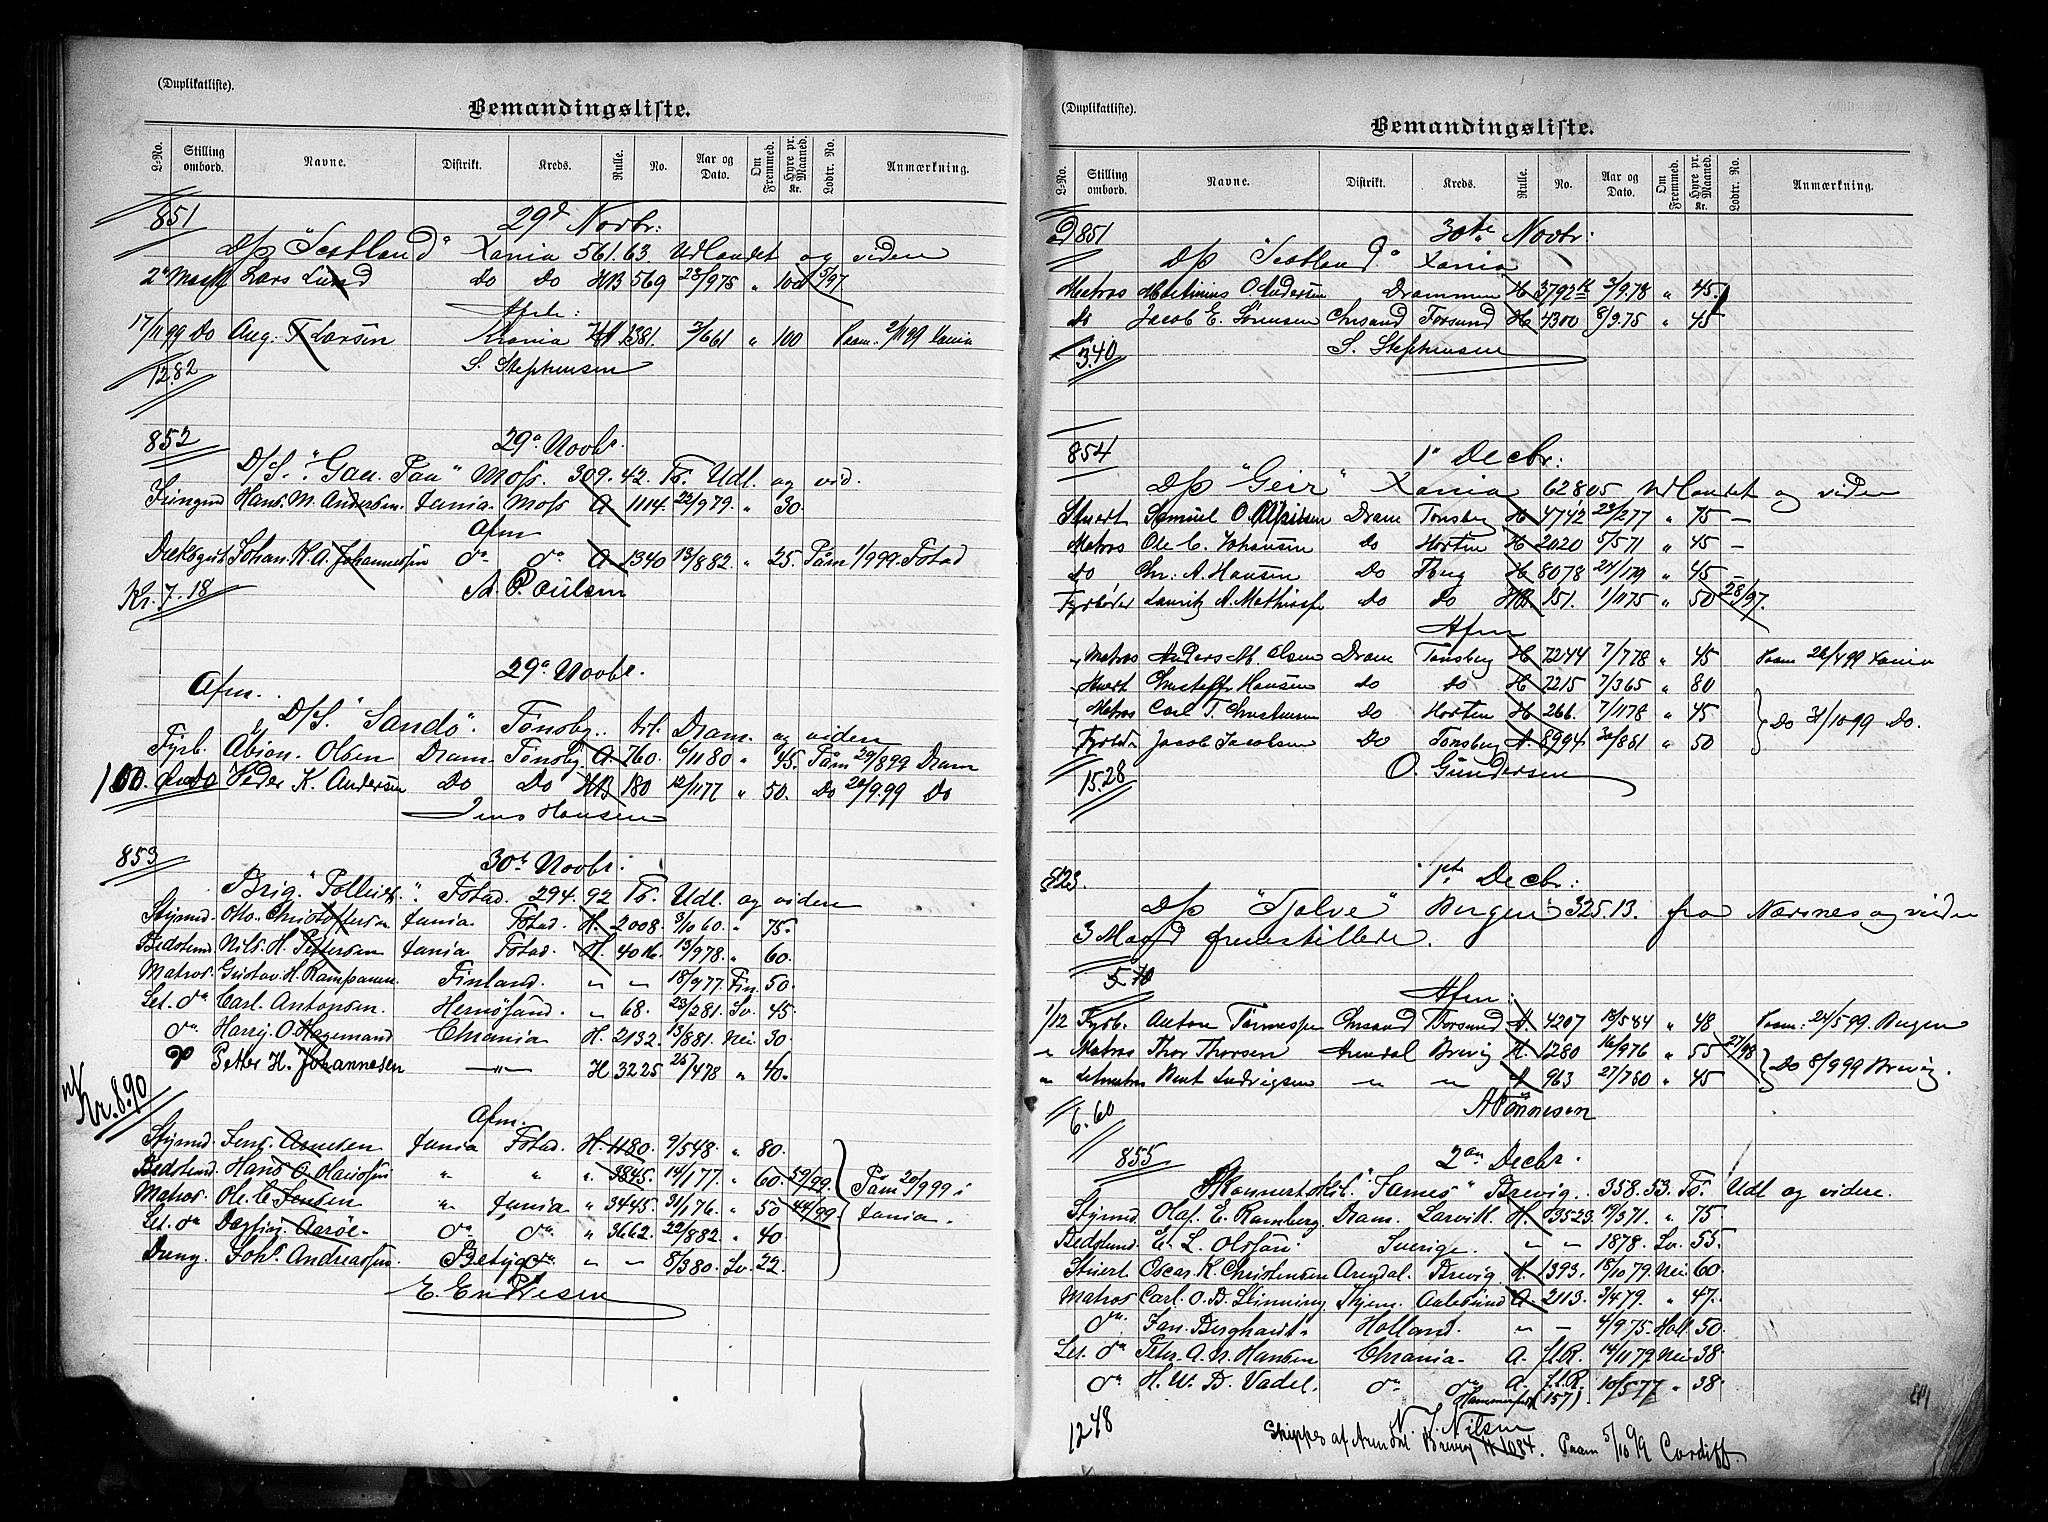 (Duplikatliste).
Bemandingsliste.
L-No. Stilling ombord. Navne. Distrikt. Kreds. Rulle. No. Aar og Dato. Om Fremmed. Hyre pr. Maaned. Kr. Lodtr. No. Anmærkning.
851 29d Novbr:
D/S "Scotland" Xania 561.63 Udlandet og viden
2n Mask Lars Lund Do Do HB 569 23/9 75 " 100 5/97
Afm:
17/11 99 Do Aug. F. Larsen Krania 1381. 2/6 61 " 100 Paam. 2/11 99 Xania
S. Stephensen
12.82
852 29d Novbr.
D/S. "Gau. Pau" Moss. 309.42. Ts. Udl. og vid.
Jungmd Hans. M. Andersen. Xania. Moss A 1114. 22/9 79 " 30.
Afm
Dæksgut Johan. K. A. Johannessen do do A 1340 13/8 82. " 25. Paam 1/9 99. Fstad
A. Poulsen
Kr. 7.18
29d Novbr.
Afm.
D/S. "Sandö". Tönsbg. til Dram. og viden
Fyrb. Abion. Olsen Dram. Tönsbg A. 760. 6/11 80 " 45. Paam 29/8 99 Dram
100. Do Peder K. Andersen Do Do HB 180 12/11 77 " 50. Do 20/9.99 Do
Jens Hansen
853 30te Novbr.
Brig. "Pollux". Fstad. 294.92 Ts. Udl. og videre
Styrmd. Otto. Christoffersen Xania. Fstad. H. 2008. 3/10 60. " 75.
Bedstmd. Nils. H. Pettersen Xania. Fstad. H. 4016. 13/9 78. " 60.
Matros. Gustav. H. Rampanen. Finland. " " 18/9 77. Fin. 50.
Let. do Carl. Antonsen. Hernösand. " 68. 23/2 81. Sv. 45.
do. Harry. O. Hagemand Chrania H. 2132. 13/8 81. Nei. 30
Petter H. Johannesen " H 3225 26/4 78 " 40.
Kr. 8.90
Afm.
Styrmd. Jens. Arnesen Xania Fstad. H. 1180. 9/5 48. " 80.
Bedstmd. Hans O. Hansen " " " 3845. 14/1 77. " 60. 59/99. Paam 20/9 99 i
Matros. Ole. C. Jensen " Xania " 3445. 31/1 76. " 50 44/99 Xania.
Let. do Aaröe. do do " 3662. 22/8 82. " 40.
Dreng. Johs. Andreassen. " " 8/3 80. Sv. 22.
E. Eriksen
(Duplikatliste).
Bemandingsliste.
L-No. Stilling ombord. Navne. Distrikt. Kreds. Rulle. No. Aar og Dato. Om Fremmed. Hyre pr. Maaned. Kr. Lodtr. No. Anmærkning.
ad 851 30te Novbr:
D/S "Scotland." Xania
Matros Martinius O. Andersen Drammen H 3792 3/9.78 " 45.
do Jacob E. Sörensen Chrsand Farsund H 4300 8/9.75 " 45
S. Stephensen
3.40
854 1e Decbr:
D/S "Geir" Xania 628.05 Udlandet og viden
Stuert Samuel O. Dram Tönsberg H 4742 23/2 77 " 75 —
Matros Ole C. Johansen Do Horten H 2020 5/5 71 " 45 —
do Chr. A. Hansen Do Tbeg H 8078 24/1 79 " 45 —
Fyrböder Lauritz A. Mathiass Do Do HB. 151. 1/11 75 " 50 28/97.
Afm
Matros Anders M. Olsen Dram Tönsberg H 7244 7/7 78 " 45 Paam 20/4 99 Xania
Stuert Christoffr Hansen do do H 7215 7/3 65 " 80
Matros Carl T. Christensen Do Horten H 266. 7/11 78 " 45 Do 31/10 99 Do.
Fyrböder Jacob Jacobsen Do Tönsberg A. 8994 30/8 61 " 50
O. Gundersen
15.28
823. 1ste Decbr:
D/S "Tjalve" Bergen 325.13. fra Nærsnes og viden
3 Mand fremstillede.
5.70
Afm:
1/12 Fyrb. Anton Tönnesse Chrsand Farsund A. 4207 13/5 84 " 48 Paam: 24/5 99. Bergen
" Matros Thor Thorsen Arendal Brevig H. 1280 16/9 76 " 55 27/98
" Letmatros Bent Ludvigsen " " A 963 27/7 80 " 45 Do 8/9 99 Brevig.
A Tönnesen
6.60
855 2den Decbr.
Skonnertskib. "James" Brevig. 358.53. Ts. Udl og videre.
Styrmd. Olaf. E. Ramberg. Dram. Larvik. H. 13523. 19/3 71. " 75
Bedstmd. E. L. Olsson Sverige. " " 1878. Sv. 55.
Stuert. Oscar. K. Christensen Arendal. Brevig. H. 1393. 18/10 79. Nei 60.
Matros Carl. O. B. Slinning. Thjem. Aalesund A. 2113. 3/4 79. " 47.
do. Jan. Berghardt. Holland. " — 4/9 75. Holl 50.
Let. do Peter. A. N. Hansen Chrania. A. f.l.R. 14/11 79 Nei 38.
do H. W. B. Vadel. do do A. f.l.R. 10/5 77 " 38.
Hammerfest (157)
N. J. Nilsen
12.48 Skippes af Arendal Brevig H 1084. Paam 5/10 99 Cardiff.